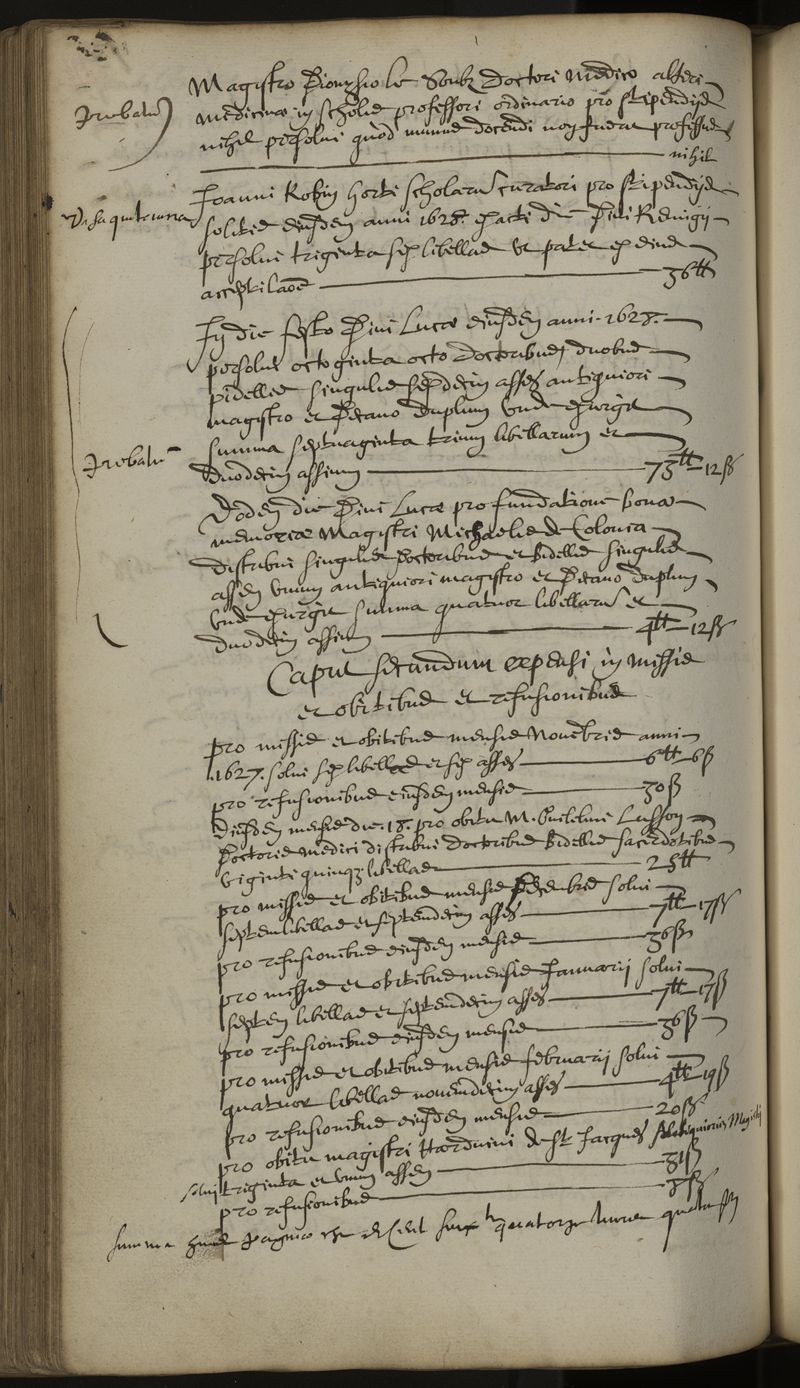 Magistro Dionysio le Soubz doctori medico alteri
medicinae in scholis professori ordinario pro stipendijs
nihil persolui quod munus docendi non fuerat professus
nihil
probatur
Joanni Robin horti scholarum curatori pro stipendijs
solitis eiusdem anni 1628. exacti die Divi Remigij
persolui triginta sex libellas ut patet ex eius
acceptilaone 36tt
In die festo Divi Lucae eiusdem anni 1628.
persolui octoginta octo doctoribus, duobus
bidellis singulis septdecim asses antiquiori
magistro et Decano duplum unde exurgit
summa septuaginta trium libellarum et
duodecim assium 73tt 12ß
probatur
Eodem die Divi Lucae pro fundatione bonae
memoriae Magistri Michaelis de Colonia
distribui singulis doctoribus et bidellis singulis
assem unum antiquiori magistro et Decano duplum
unde exurgit summa quatuor libellarum et
duodecim assium 4tt 12ß
Caput secundum expensi in missis
et obitibus et refusionibus
pro missis et obitibus mensis Novembris anni
1627. solui sex libellas et sex asses 6tt 6ß
pro refusionibus eiusdem mensis 30ß
Eiusdem mensis die 18. pro obitu M. Guilielmi Lusson
Doctoris medici distribui doctoribus Bidellis sacerdotibus
viginti quinq libellas 25tt
pro missis et obitibus mensis Decembris solui
septem libellas et septemdecim asses 7tt 17ß
pro refusionibus eiusdem mensis 36ß
pro missis et obitibus mensis Januarij solui
septem libellas et septemdecim asses 7tt 17ß
pro refusionibus eiusdem mensis 36ß
pro missis et obitibus mensis februarij solui
quatuor libellas novemdecim asses 4tt 19ß
pro refusionibus eiusdem mensis 20ß
pro obitu magistri Harduini de St Jacques Antiquioris Magistri
solui triginta et unum assem 31ß
pro refusionibus
summa huius paginae quatorze livres